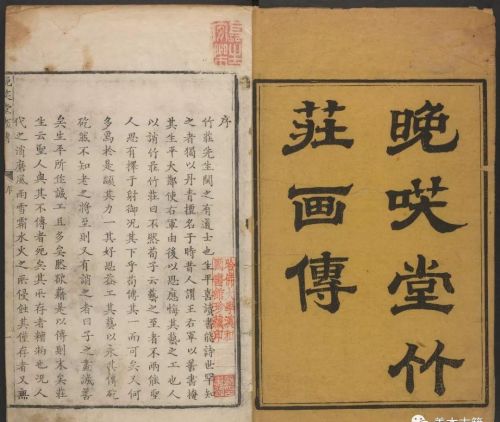 晚咲堂竹
莊画傳
序
竹莊先生閩之有道士也生平喜讀書能詩世罕知
之者獨以丹青擅名于時昔人謂王右軍以善書掩
其生平大都使右軍由後以思應悔其藝之工也人
以誚竹莊竹莊曰不然荀子云藝之至者不兩能聖
人思有擇于射御况其下乎苟傳其一而可矣又何
多焉於是顓其力一其好思益工其藝以永其傳矻
矻然不知老之將至則又有誚之者曰子之斋誠善
矣生平所作誠工且多矣然欲藉是以傳則末矣莊
生云聖人與其不傳者死矣其所存者糟粕也况人
代之消磨風雨雪霜水火之所侵蝕其僅存者又無
善本古籍